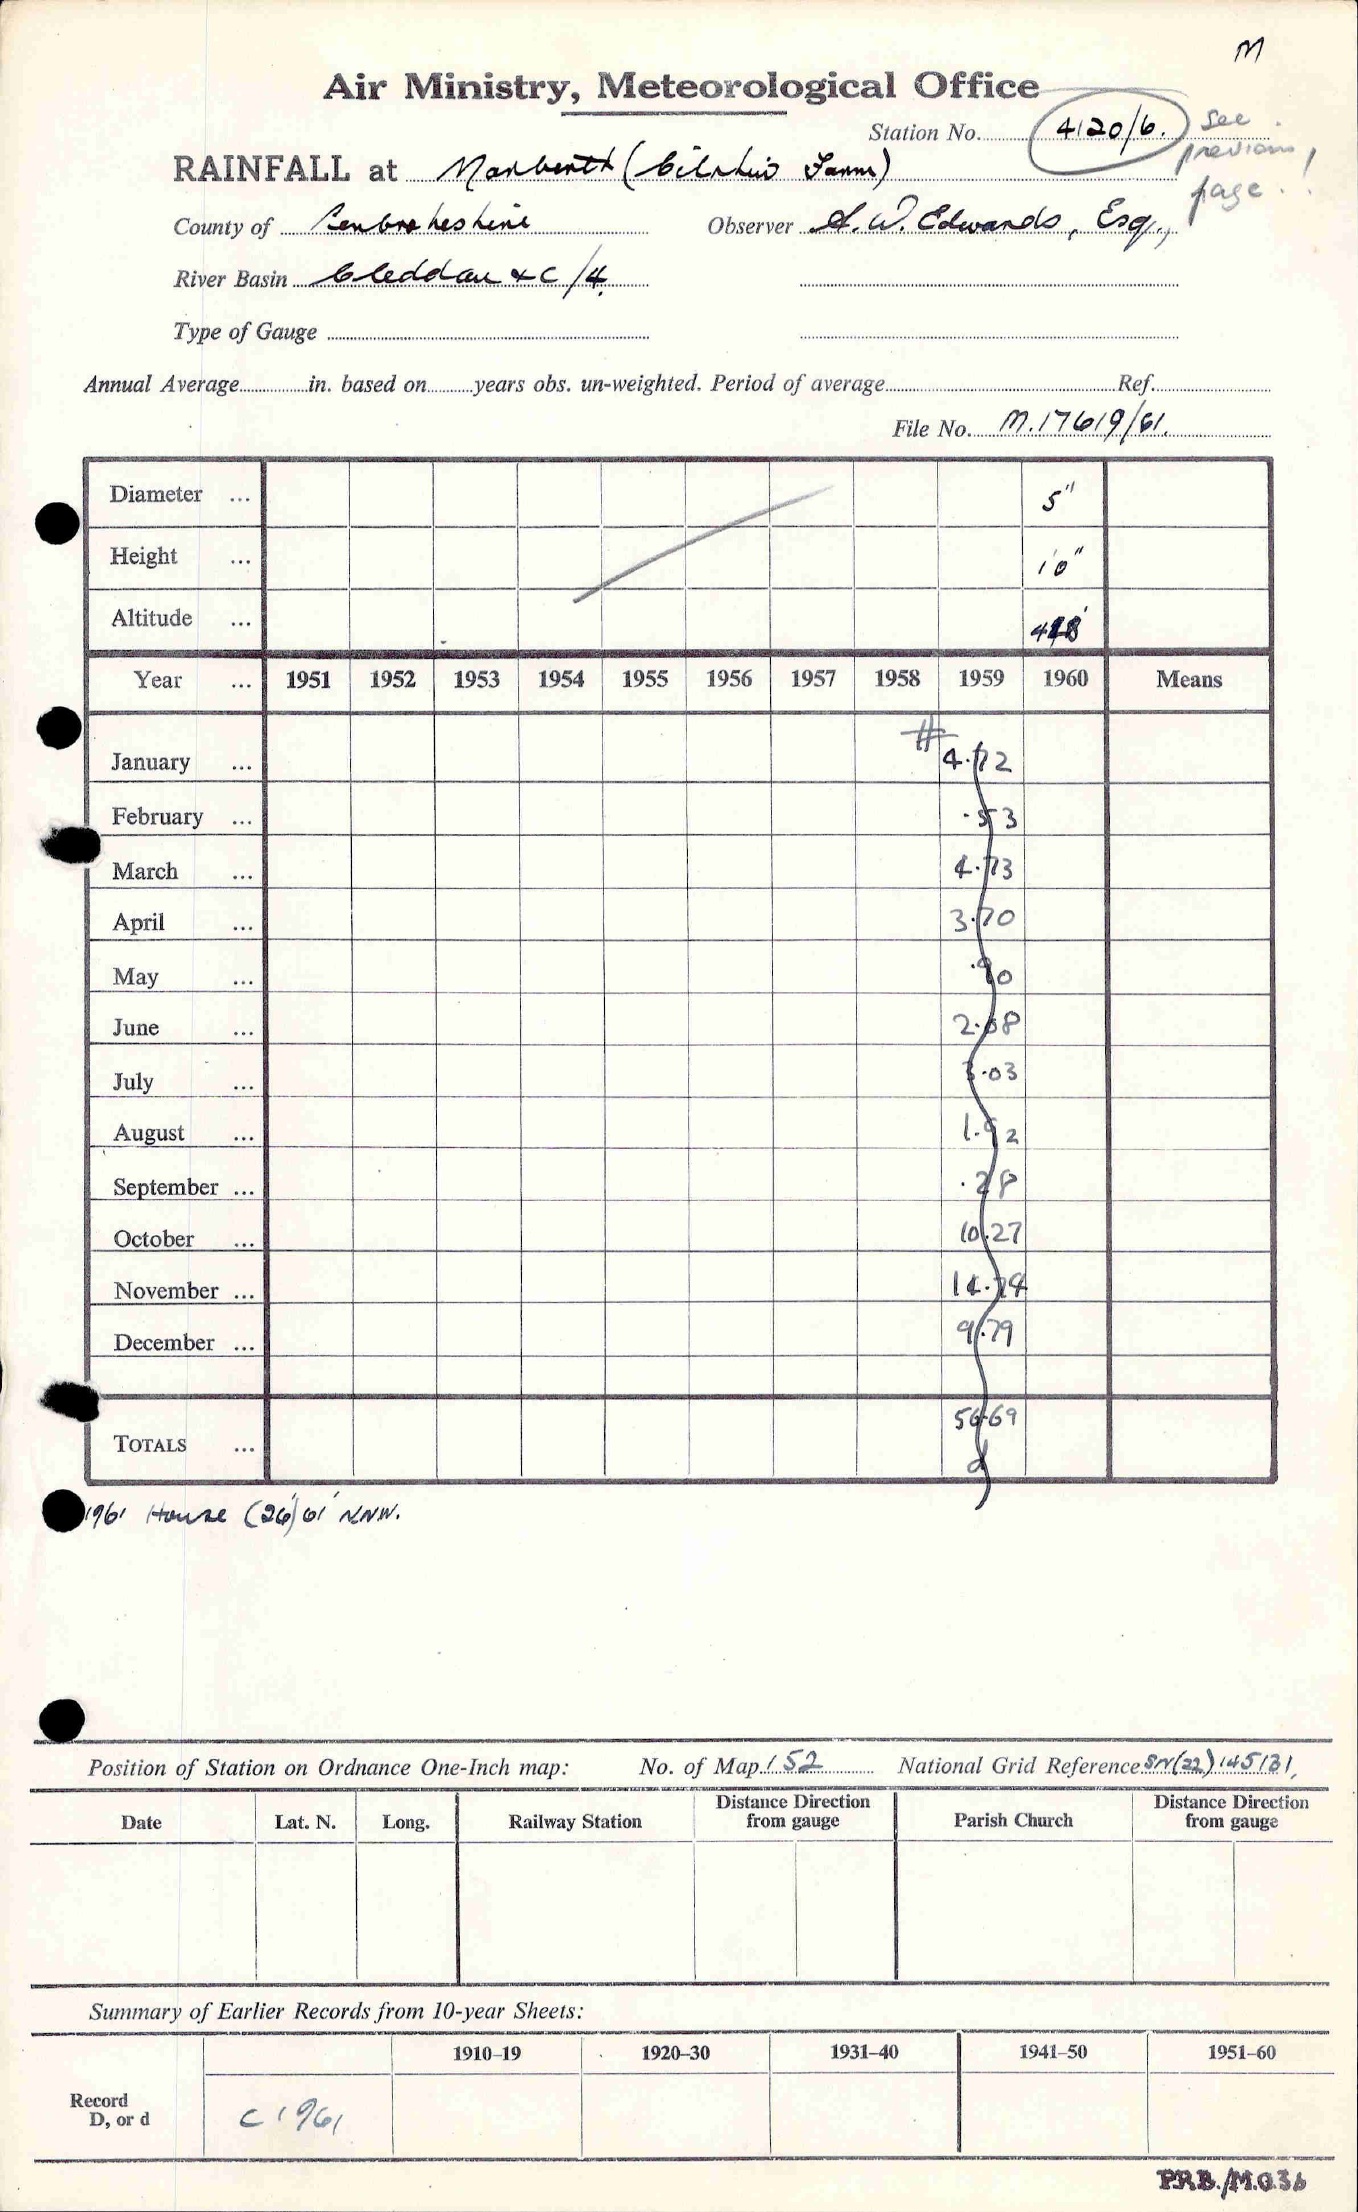 M
Air Ministry, Meteorological Office
Station No. 4120/6. see previous page.!
RAINFALL at Narberth (Cilrhiw Farm)
County of Pembrokeshire Observer A. W. Edwards, Esq.,
River Basin Cleddau &c /4.
Type of Gauge
Annual Average in. based on years obs. un-weighted. Period of average Ref.
File No. M.17619/61.
Diameter ... 5"
Height ... 10"
Altitude ...
Year ... 1951 1952 1953 1954 1955 1956 1957 1958 1959 1960 Means
January ... # 4.72
February ... .53
March ... 4.73
April ... 3.70
May ... .90
June ... 2.08
July ... 3.03
August ... 1.92
September ... .28
October ... 10.27
November ... 14.74
December ... 9.79
TOTALS ... 56.69
d
1961 House (26') 61' NNW.
Position of Station on Ordnance One-Inch map: No. of Map 152 National Grid Reference SN(22)145131,
Date Lat. N. Long. Railway Station Distance Direction from gauge Parish Church Distance Direction from gauge
Summary of Earlier Records from 10-year Sheets:
1910–19 1920–30 1931–40 1941–50 1951–60
Record
D, or d C 1961
P.R.B./M.O.3b